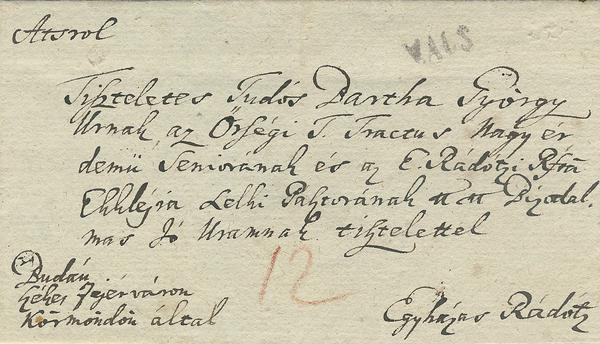 Atsrol
V.ALS
Tiszteletes Tudós Bartha György
Urnak az Őrségi T. Tractus Nagy ér
demü Seniorának és az E. Rádótzi Rfrā
Ekklésia Lelki Pásztorának Bizodal.
mas Jó Uramnak tisztelettel
Budán
Fejérváron
Körmöndön által
12
Egyházas Rádótz